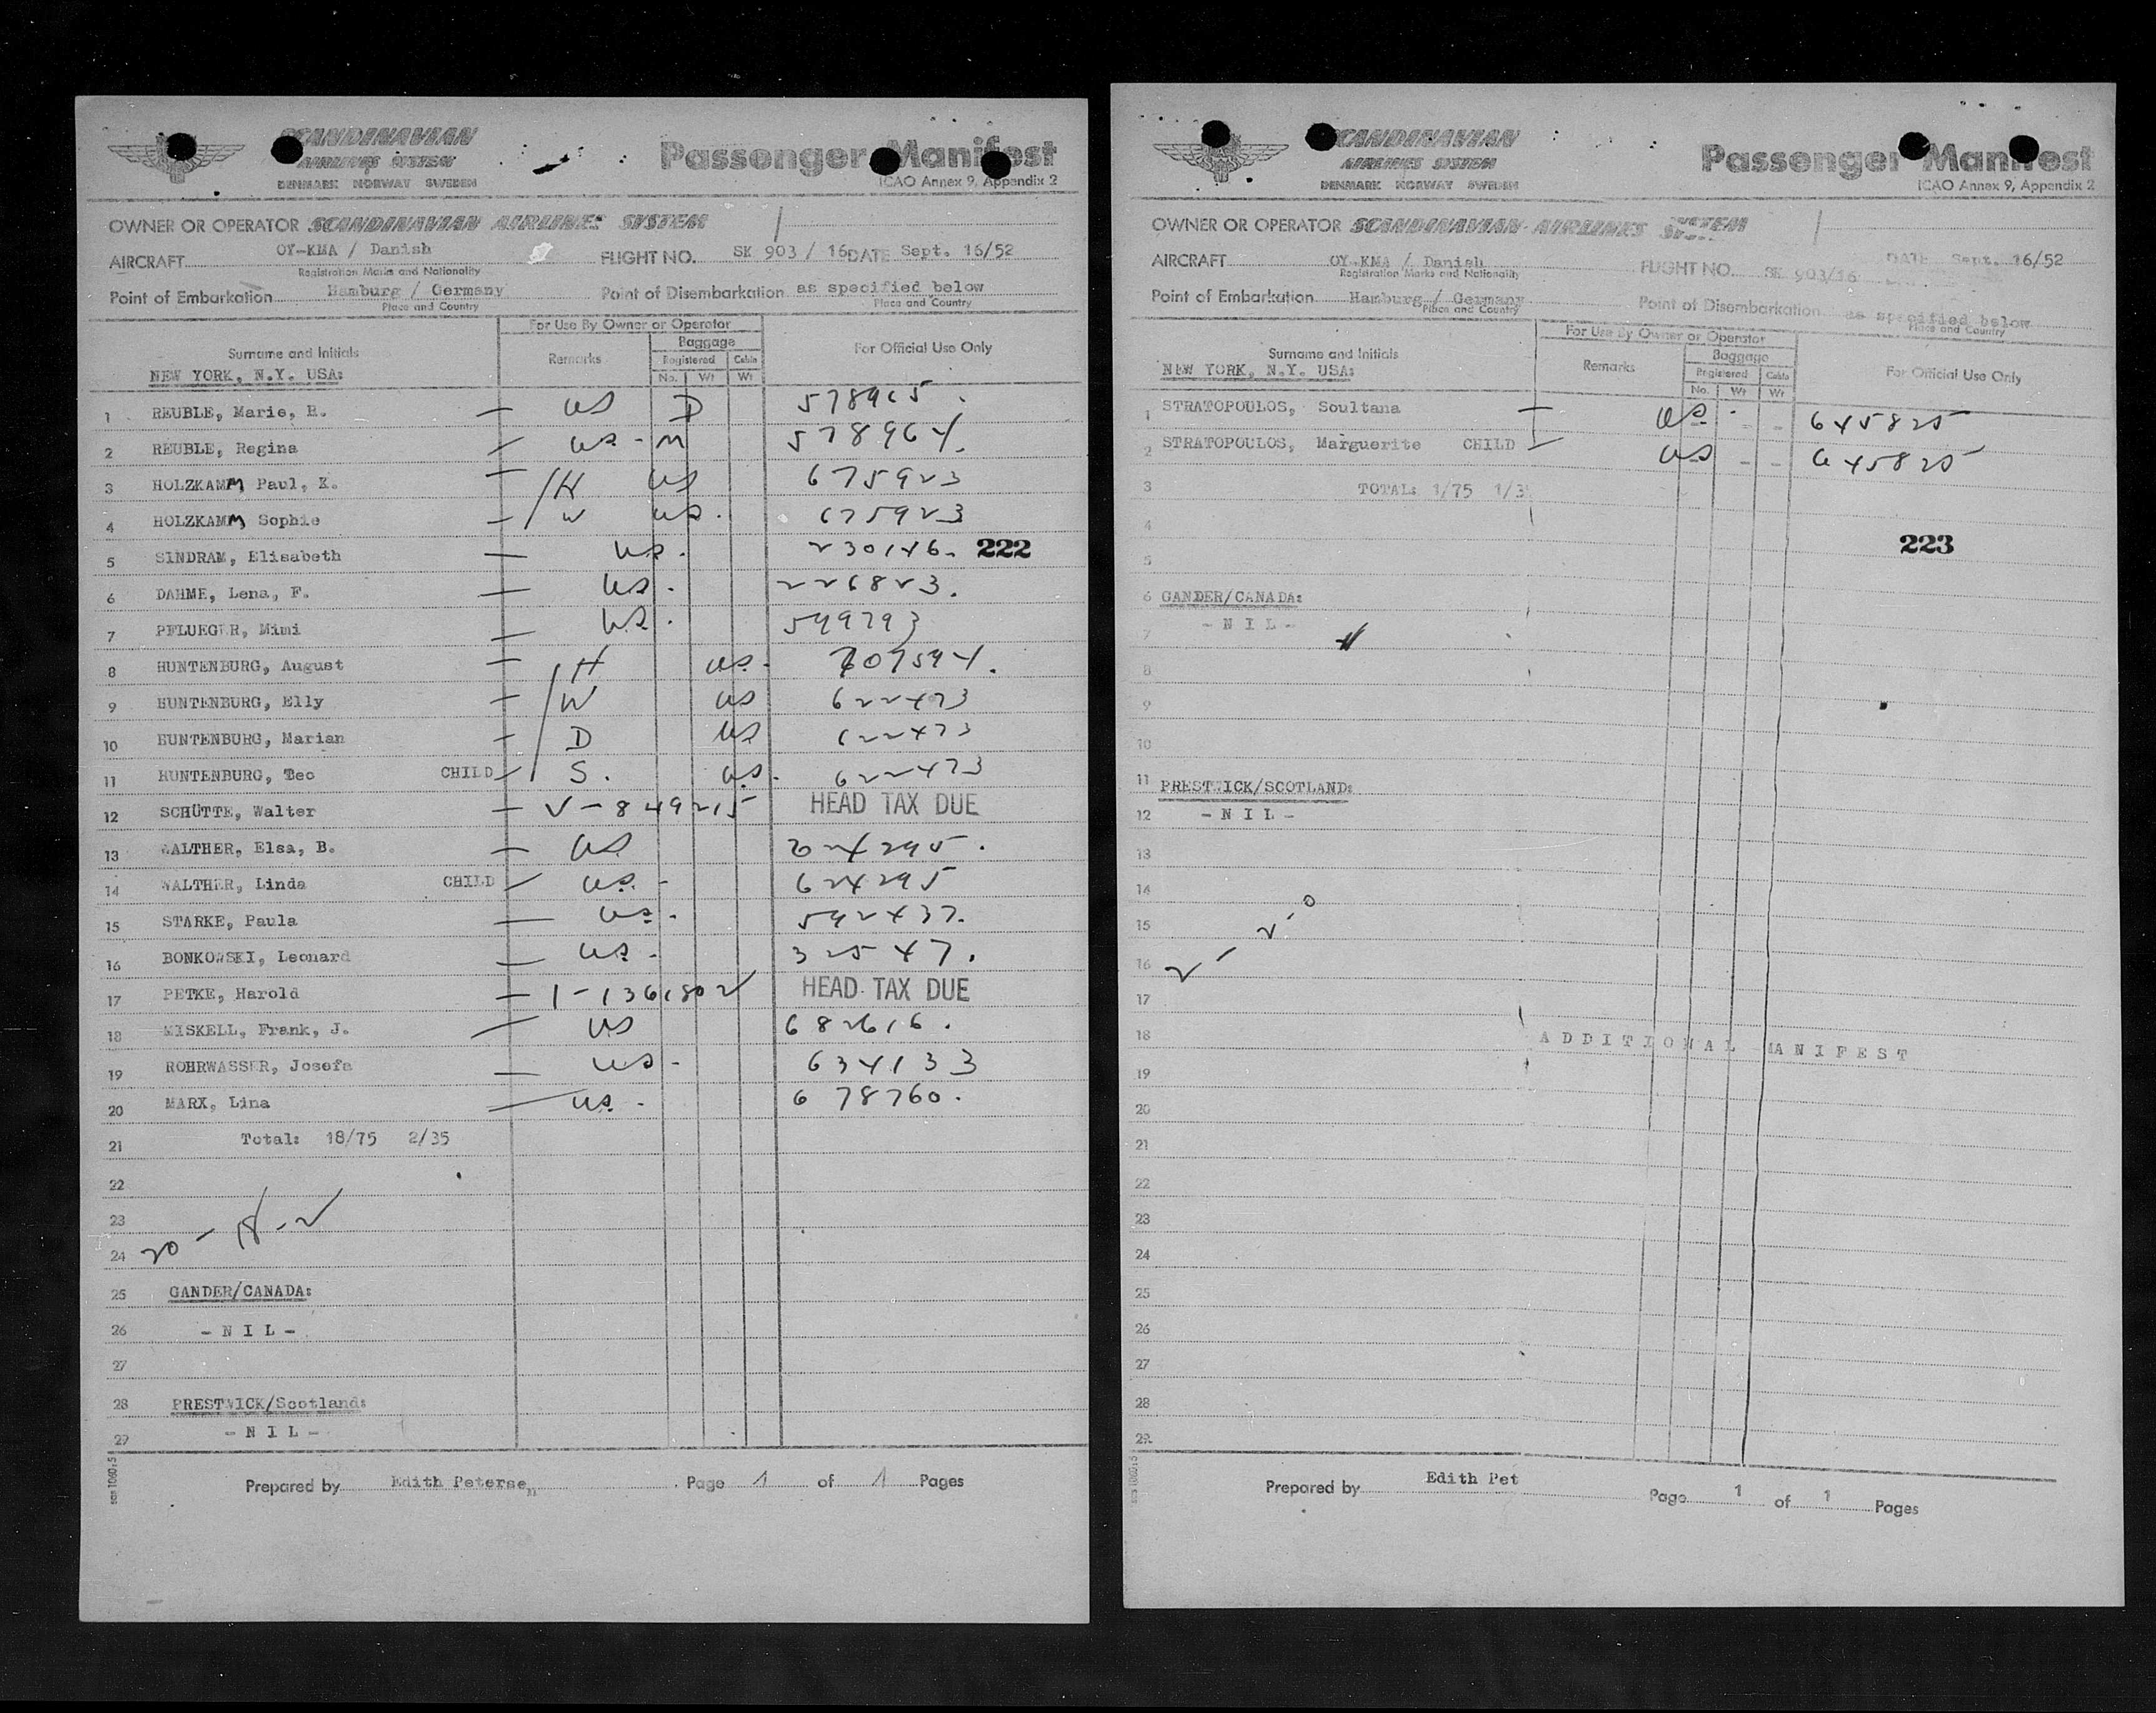 SCANDINAVIAN
AIRLINES SYSTEM
DENMARK NORWAY SWEDEN
Passenger Manifest
ICAO Annex 9, Appendix 2
OWNER OR OPERATOR SCANDINAVIAN AIRLINES SYSTEM
AIRCRAFT OY-KMA / Danish FLIGHT NO. SK 903 / 16 DATE Sept. 16/52
Registration Marks and Nationality
Point of Embarkation Hamburg / Germany Point of Disembarkation as specified below
Place and Country Place and Country
For Use By Owner or Operator
Baggage
Surname and Initials Remarks Registered Cabin For Official Use Only
NEW YORK, N.Y. USA: No. Wt Wt
1 REUBLE, Marie, R. — US D 578965.
2 REUBLE, Regina — US - M 578964.
3 HOLZKAMM, Paul, K. — H US 675923
4 HOLZKAMM, Sophie — W US. 675923
5 SINDRAM, Elisabeth — US. 230146. 222
6 DAHME, Lena, F. — US. 226823.
7 PFLUEGER, Mimi — US. 549793
8 HUNTENBURG, August — H US. 607594.
9 HUNTENBURG, Elly — W US 622473
10 HUNTENBURG, Marian — D US 622473
11 HUNTENBURG, Teo CHILD — S. US. 622473
12 SCHÜTTE, Walter — V-849215 HEAD TAX DUE
13 WALTHER, Elsa, B. — US 624295.
14 WALTHER, Linda CHILD — US. - 624295
15 STARKE, Paula — US. 592437.
16 BONKOWSKI, Leonard — US. 32547.
17 PETKE, Harold — I-1361802 HEAD TAX DUE
18 MISKELL, Frank, J. — US 682616.
19 ROHRWASSER, Josefa — US - 634133
20 MARX, Lina — US. - 678760.
21 Total: 18/75 2/35
22
23
24 20 - 18 - 2
25 GANDER/CANADA:
26 - N I L -
27
28 PRESTWICK/Scotland:
29 - N I L -
Prepared by Edith Petersen Page 1 of 1 Pages
SCANDINAVIAN
AIRLINES SYSTEM
DENMARK NORWAY SWEDEN
Passenger Manifest
ICAO Annex 9, Appendix 2
OWNER OR OPERATOR SCANDINAVIAN AIRLINES SYSTEM
AIRCRAFT OY-KMA / Danish FLIGHT NO. SK 903/16 DATE Sept. 16/52
Registration Marks and Nationality
Point of Embarkation Hamburg / Germany Point of Disembarkation as specified below
Place and Country Place and Country
For Use By Owner or Operator
Baggage
Surname and Initials Remarks Registered Cabin For Official Use Only
NEW YORK, N.Y. USA: No. Wt Wt
1 STRATOPOULOS, Soultana — US - - 645825
2 STRATOPOULOS, Marguerite CHILD — US - - 645825
3 TOTAL: 1/75 1/3
4
223
5
6 GANDER/CANADA:
7 - N I L -
8
9
10
11 PRESTWICK/SCOTLAND:
12 - N I L -
13
14
15
16 2 - 2 - 0
17
18 ADDITIONAL MANIFEST
19
20
21
22
23
24
25
26
27
28
29
Prepared by Edith Pet Page 1 of 1 Pages